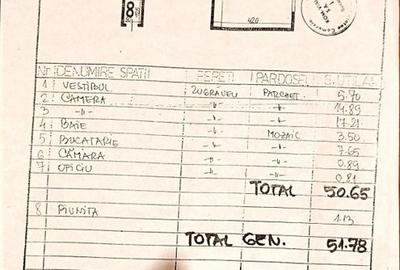 8
420
Nr DENUMIRE SPAȚII PEREȚI PARDOSELI S.UTILA
1 VESTIBUL ZUGRAVELI PARCHET 5.70
2 CAMERA -"- -"- 14.89
3 -"- -"- -"- 17.21
4 BAIE -"- MOZAIC 3.50
5 BUCATARIE -"- -"- 7.65
6 CĂMARA -"- -"- 0.89
7 OFICIU -"- -"- 0.81
TOTAL 50.65
8 1.13
TOTAL GEN. 51.78